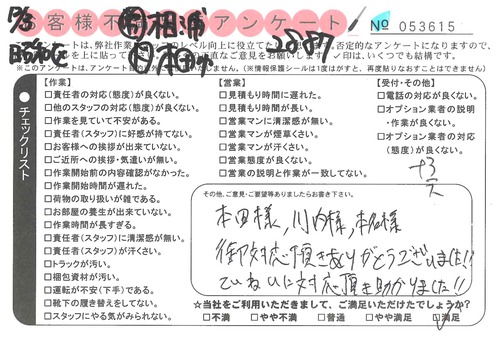 お客様不満アンケート
№ 053615
アンケートは、弊社作業
レベル向上に役立てた
否定的なアンケートになりますので、
印は、いくつでも結構です。
※このアンケートは、
(※情報保護シールは1度はがすと、再度貼りなおすことはできません)
チェックリスト
【作業】
□責任者の対応(態度)が良くない。
□他のスタッフの対応(態度)が良くない。
□作業を見ていて不安がある。
□責任者(スタッフ)に好感が持てない。
□お客様への挨拶が出来ていない。
□ご近所への挨拶・気遣いが無い。
□作業開始前の内容確認がなかった。
□作業開始時間が遅れた。
□荷物の取り扱いが雑である。
□お部屋の養生が出来ていない。
□作業時間が長すぎる。
□責任者(スタッフ)に清潔感が無い。
□責任者(スタッフ)が汗くさい。
□トラックが汚い。
□梱包資材が汚い。
□運転が不安(下手)である。
□靴下の履き替えをしてない。
□スタッフにやる気がみられない。
【営業】
□見積もり時間に遅れた。
□見積もり時間が長い。
□営業マンに清潔感が無い。
□営業マンが煙草くさい。
□営業マンが汗くさい。
□営業態度が良くない。
□営業の説明と作業が一致してない。
【受付・その他】
□電話の対応が良くない。
□オプション業者の説明
・作業が良くない。
□オプション業者の対応
(態度)が良くない。
その他、ご意見・ご要望等ありましたらお書き下さい。
本田様,川内様,本名様
御対応頂きありがとうございました!!
ていねいに対応頂き助かりました!!
☆当社をご利用いただきまして、ご満足いただけたでしょうか?
□不満 □やや不満 □普通 □やや満足 □満足